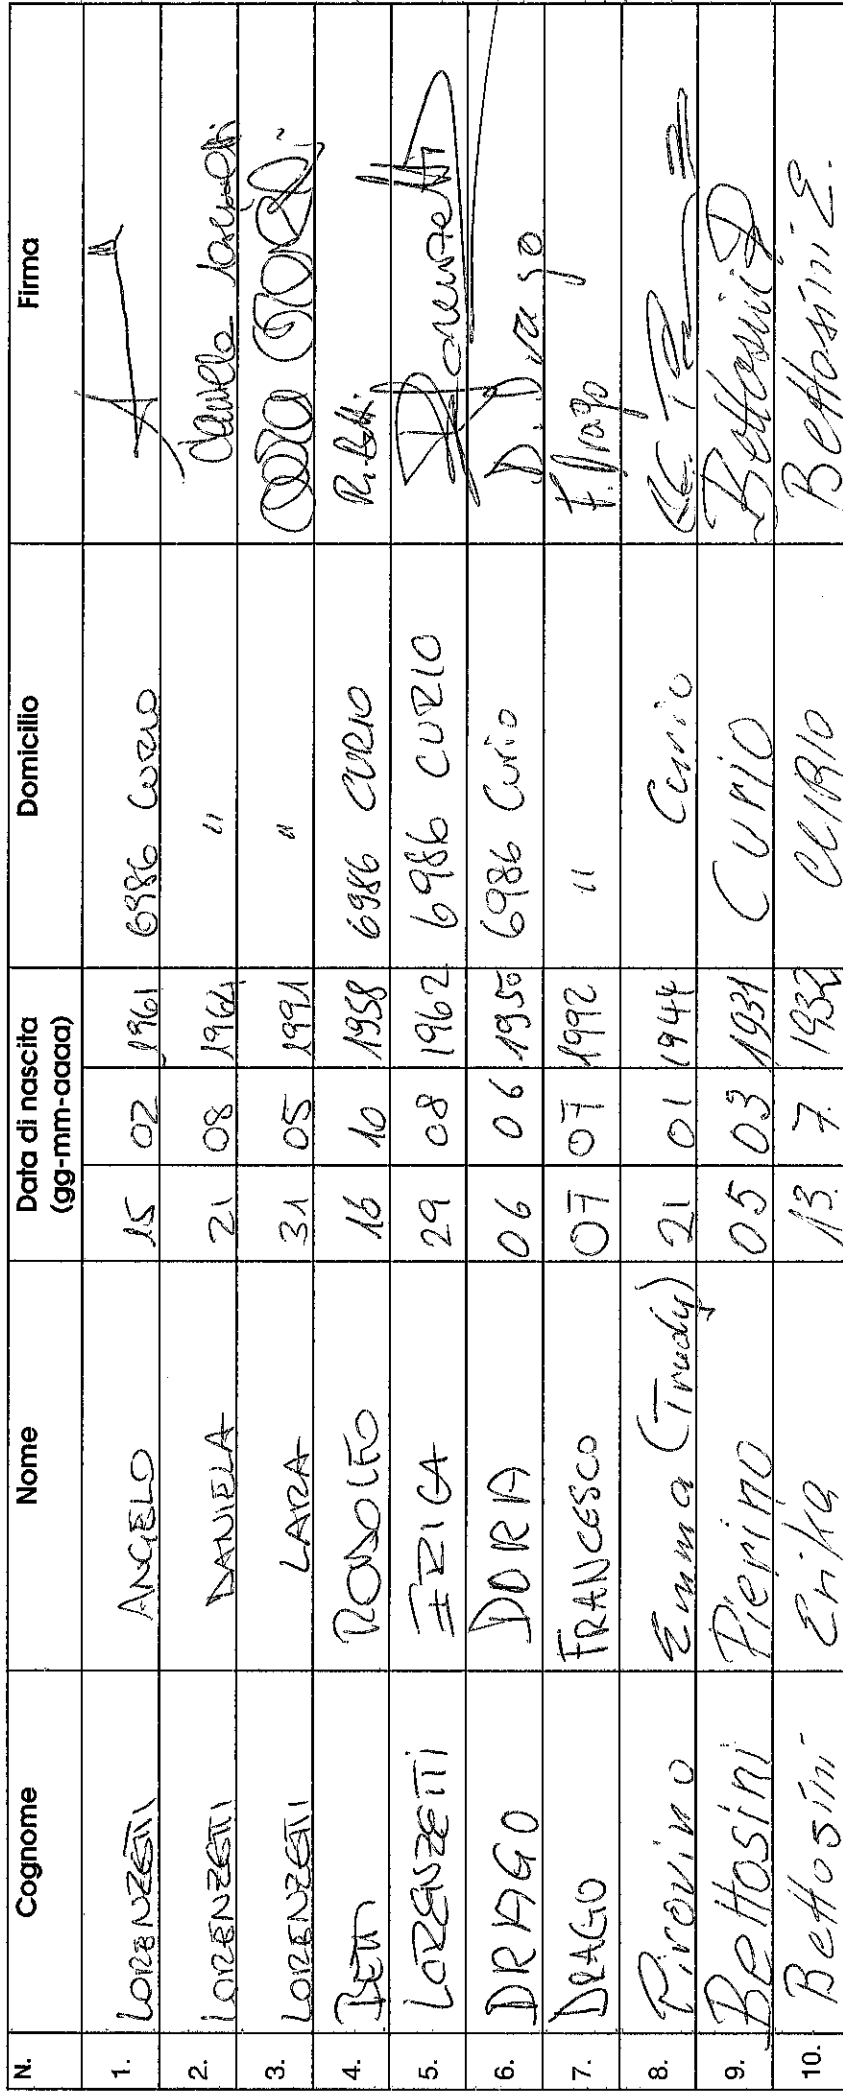 N. Cognome Nome Data di nascita (gg-mm-aaaa) Domicilio Firma
1. LORENZETTI ANGELO 15 02 1961 6986 Curio
2. LORENZETTI DANIELA 21 08 1964 " Daniela Lorenzetti
3. LORENZETTI LARA 31 05 1991 "
4. BETTI RODOLFO 16 10 1958 6986 CURIO R. Betti
5. LORENZETTI ERICA 29 08 1962 6986 CURIO Lorenzetti
6. DRAGO DORIA 06 06 1950 6986 Curio D. Drago
7. DRAGO FRANCESCO 07 07 1992 " F. Drago
8. Pirovino Emma (Trudy) 21 01 1944 Curio
9. Bettosini Pierino 05 03 1931 Curio Bettosini P
10. Bettosini Erika 13. 7. 1932 CURIO Bettosini E.